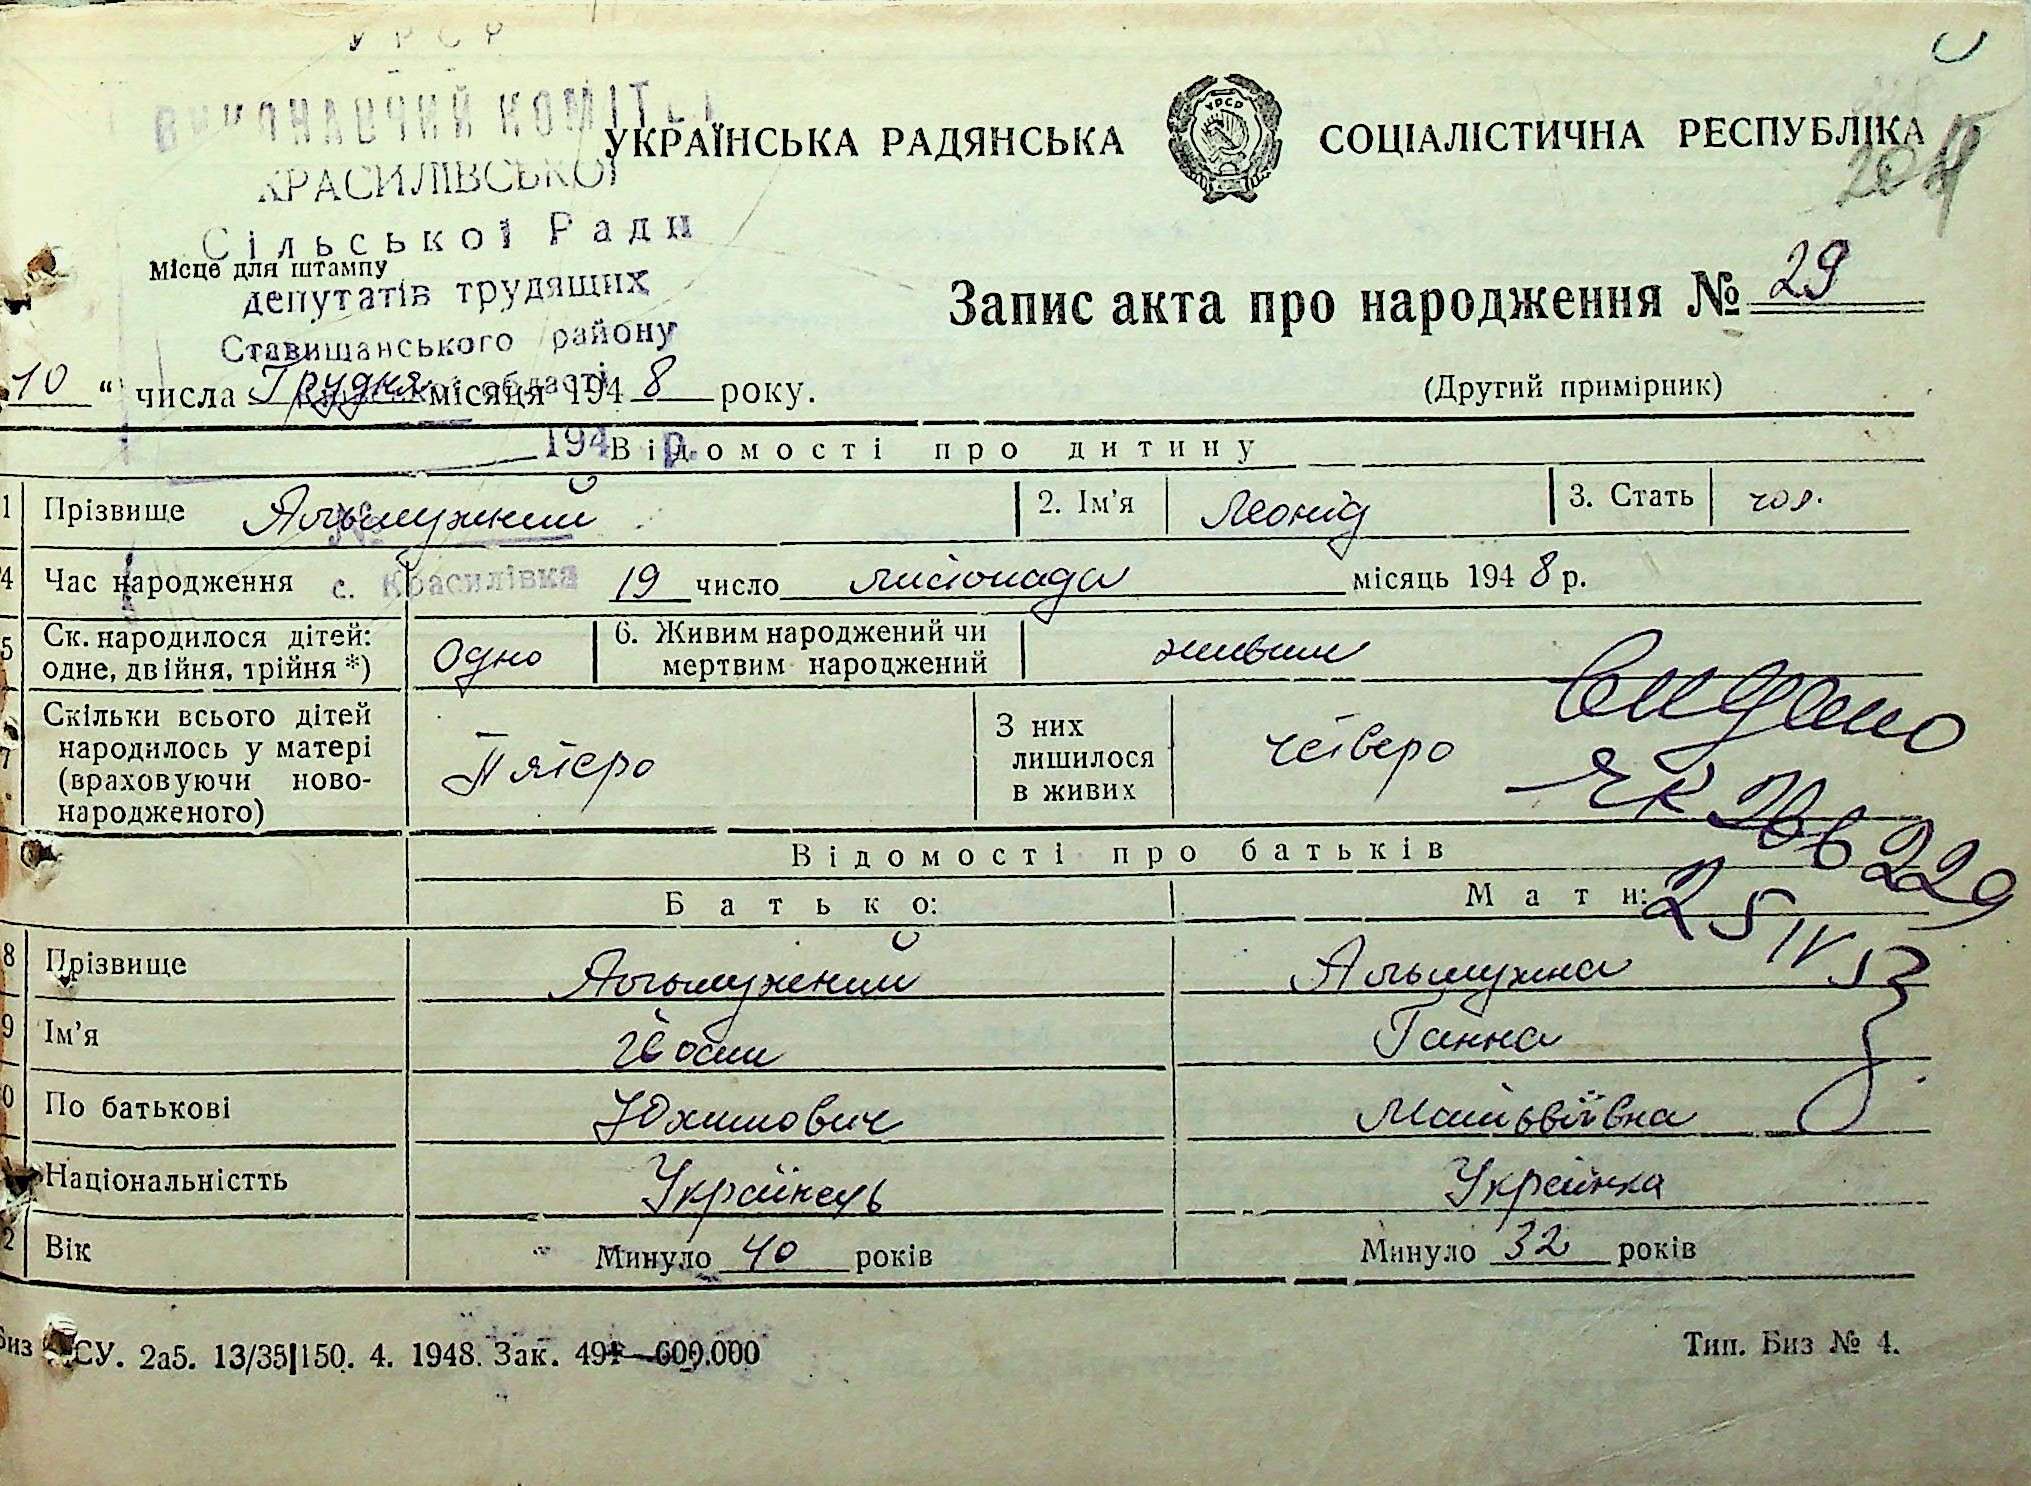 УРСР
ВИКОНАВЧИЙ КОМІТЕТ
КРАСИЛІВСЬКОЇ
Сільської Ради
депутатів трудящих
Ставищанського району
області
194 р.
№
с. Красилівка
УКРАЇНСЬКА РАДЯНСЬКА СОЦІАЛІСТИЧНА РЕСПУБЛІКА
Місце для штампу
Запис акта про народження № 29
10 “ числа Грудня місяця 1948 року.
(Другий примірник)
Відомості про дитину
1 Прізвище Альмужний 2. Ім'я Леонід 3. Стать чол.
4 Час народження 19 число листопада місяць 1948 р.
5 Ск. народилося дітей: одне, двійня, трійня *) Одно 6. Живим народжений чи мертвим народжений живим
7 Скільки всього дітей народилось у матері (враховуючи ново-народженого) Пятеро З них лишилося в живих четверо
Видано
ЯК
229
25 IV 53
Відомості про батьків
Батько: Мати:
8 Прізвище Альмужний Альмужна
9 Ім'я Йосип Ганна
0 По батькові Юхимович Матьвіївна
Національністть Українець Українка
2 Вік Минуло 40 років Минуло 32 років
Биз СУ. 2а5. 13/35|150. 4. 1948. Зак. 491—600.000
Тип. Биз № 4.